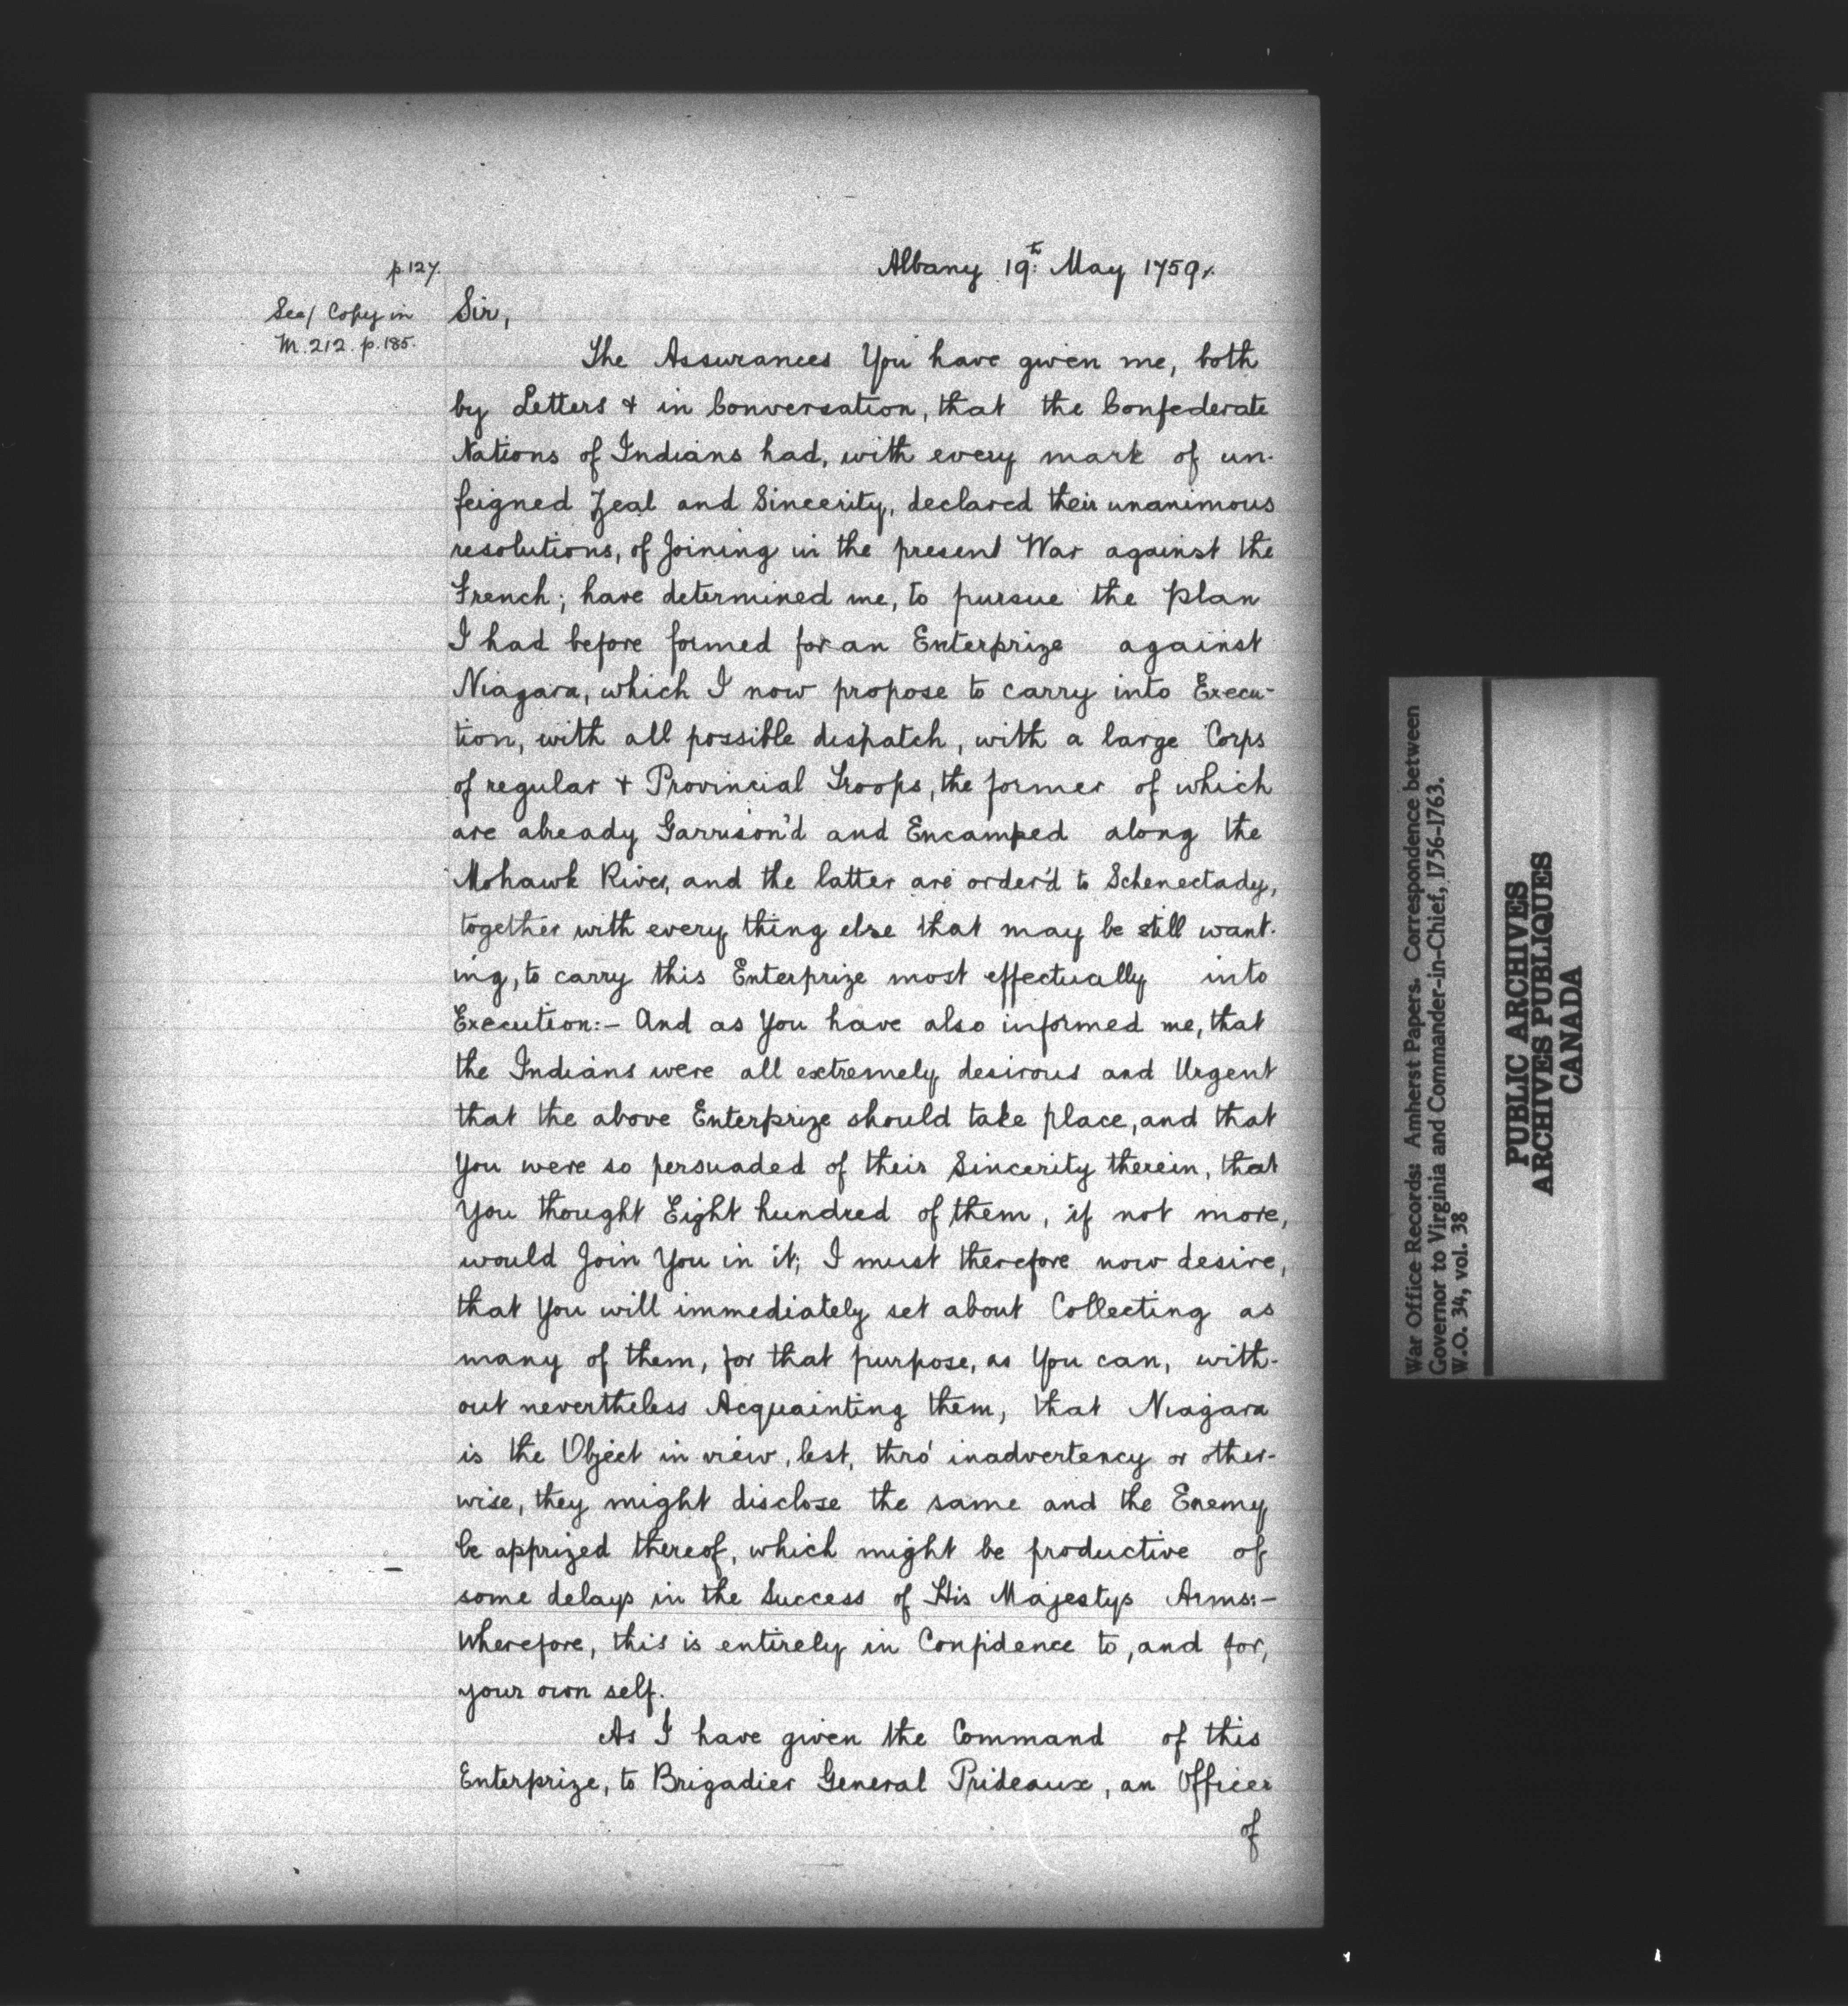 p.127.
Albany 19th: May 1759,.
See/ Copy in
M.212. p.185.
Sir,
The Assurances You have given me, both
by Letters & in Conversation, that the Confederate
Nations of Indians had, with every mark of un-
feigned Zeal and Sincerity, declared their unanimous
resolutions, of Joining in the present War against the
French; have determined me, to pursue the plan
I had before formed for an Enterprize against
Niagara, which I now propose to carry into Execu-
tion, with all possible dispatch, with a large Corps
of regular & Provincial Troops, the former of which
are already Garrison'd and Encamped along the
Mohawk River, and the latter are order'd to Schenectady,
together with every thing else that may be still want-
ing, to carry this Enterprize most effectually into
Execution:- And as You have also informed me, that
the Indians were all extremely desirous and Urgent
that the above Enterprize should take place, and that
You were so persuaded of their Sincerity therein, that
You thought Eight hundred of them, if not more,
would Join You in it; I must therefore now desire,
that You will immediately set about Collecting as
many of them, for that purpose, as You can, with-
out nevertheless Acquainting them, that Niagara
is the Object in view, lest, thro' inadvertency or other-
wise, they might disclose the same and the Enemy
be apprized thereof, which might be productive of
some delays in the Success of His Majestys Arms:-
Wherefore, this is entirely in Confidence to, and for,
your own self.
As I have given the Command of this
Enterprize, to Brigadier General Prideaux, an Officer
of
War Office Records: Amherst Papers. Correspondence between
Governor to Virginia and Commander-in-Chief, 1756-1763.
W.O. 34, vol. 38
PUBLIC ARCHIVES
ARCHIVES PUBLIQUES
CANADA